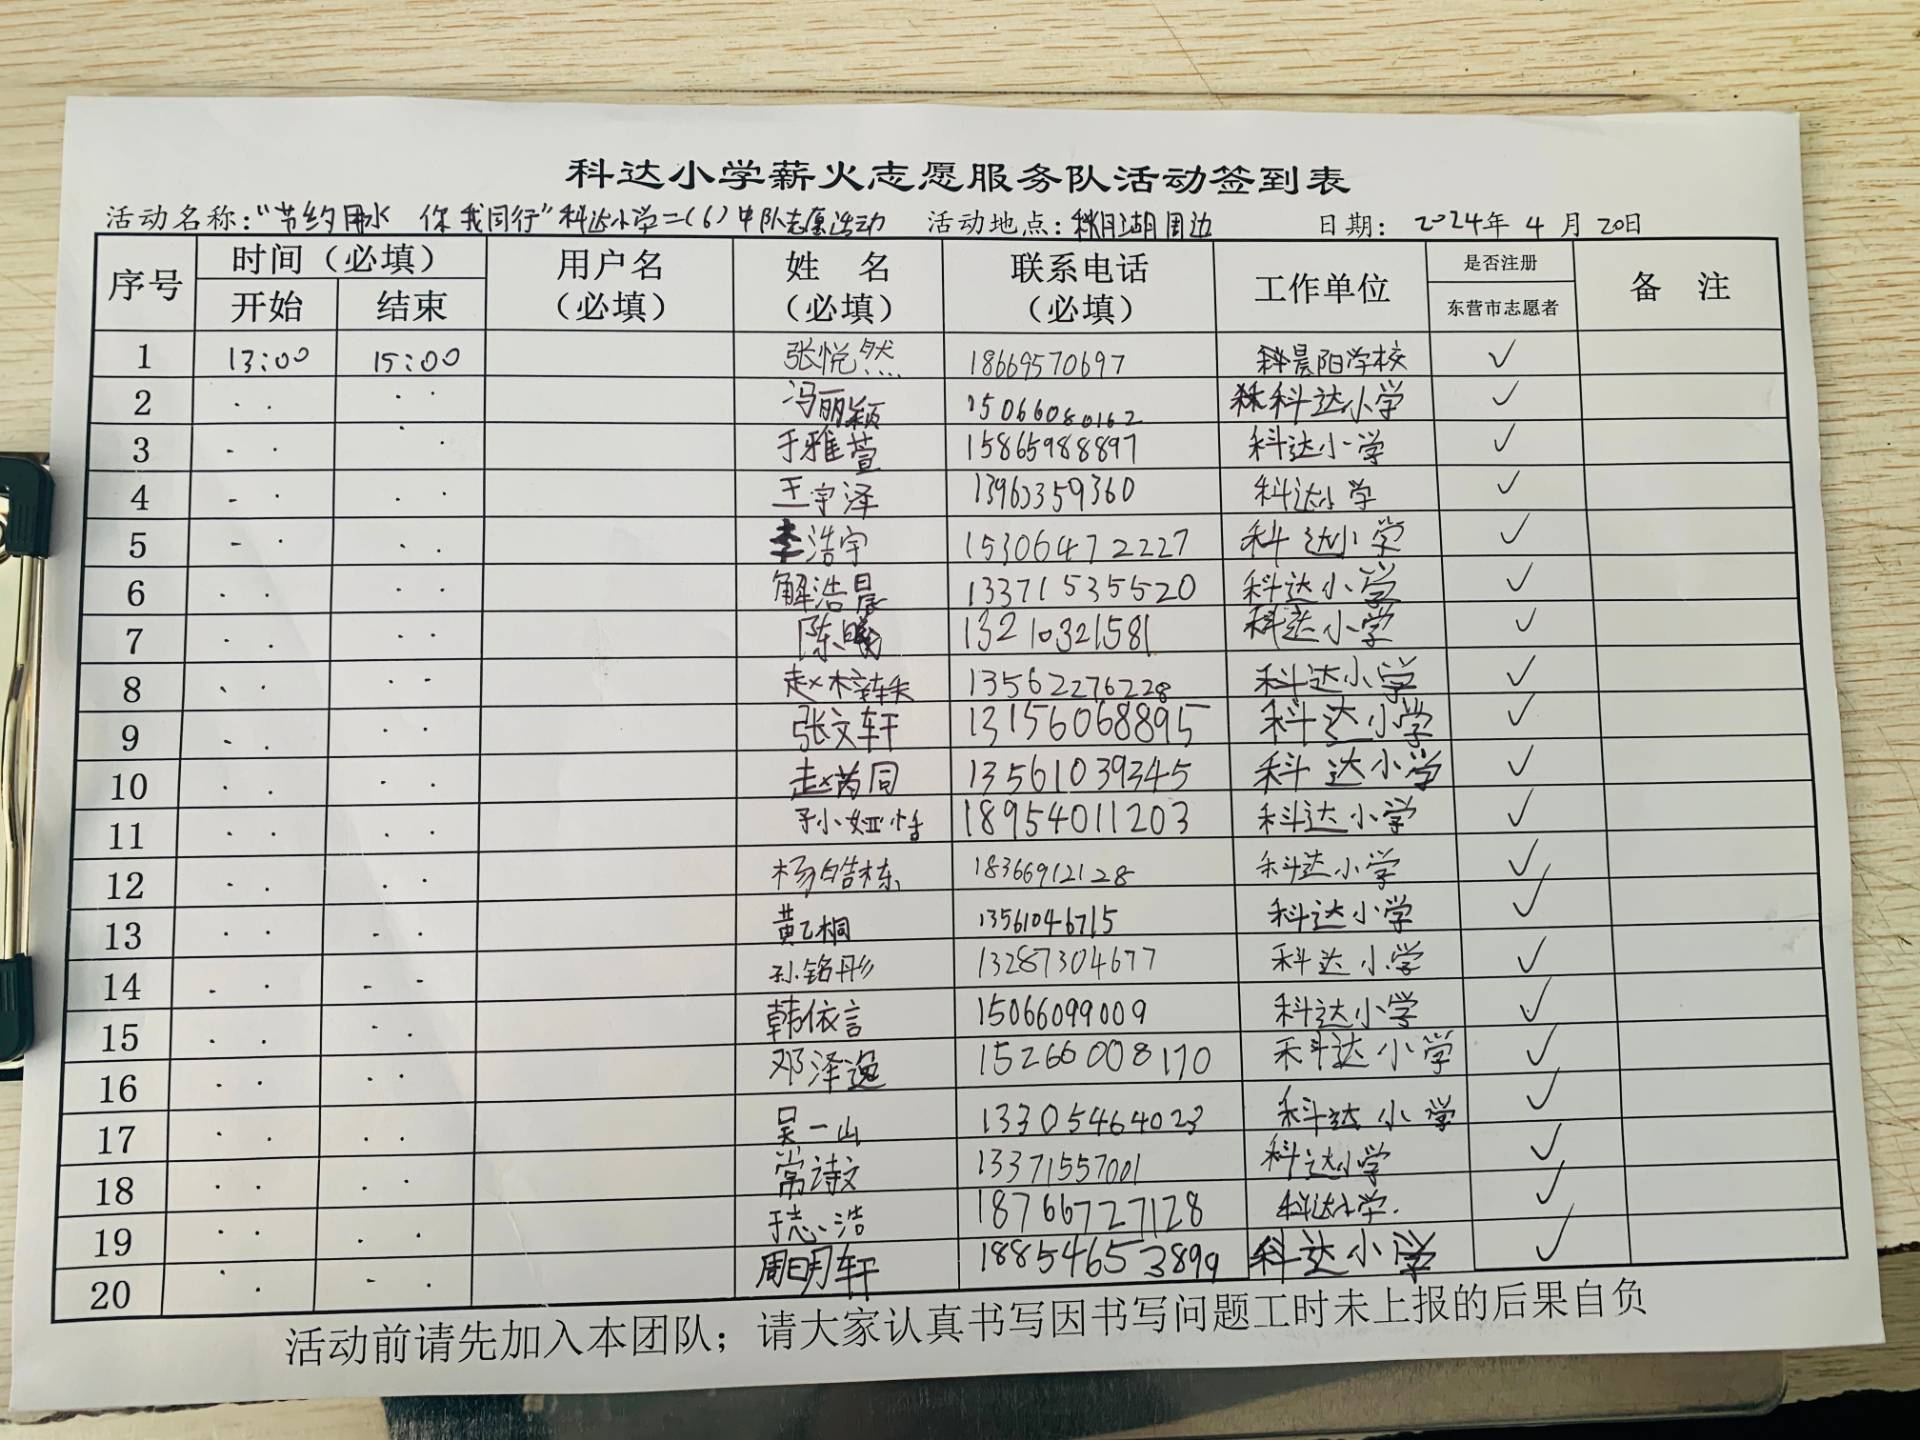 科达小学薪火志愿服务队活动签到表
活动名称:“节约用水 你我同行”科达小学二(6)中队志愿活动 活动地点:秋月湖周边 日期: 2024年 4 月 20日
序号 时间(必填) 用户名 姓 名 联系电话 工作单位 是否注册 备 注
开始 结束 (必填) (必填) (必填) 东营市志愿者
1 13:00 15:00 张悦然 18669570697 晨阳学校 ✓
2 · · · · 冯丽颖 15066080162 科达小学 ✓
3 · · · · 于雅萱 15865988897 科达小学 ✓
4 · · · · 王宇泽 13963359360 科达小学 ✓
5 · · · · 李浩宇 15306472227 科达小学 ✓
6 · · · · 解浩晨 13371535520 科达小学 ✓
7 · · · · 陈 13210321581 科达小学 ✓
8 · · · · 赵梓轶 13562276228 科达小学 ✓
9 · · · · 张文轩 13156068895 科达小学 ✓
10 · · · · 赵芮同 13561039345 科达小学 ✓
11 · · · · 孙娅恬 18954011203 科达小学 ✓
12 · · · · 杨皓栋 18366912128 科达小学 ✓
13 · · · · 黄乙桐 13561046715 科达小学 ✓
14 · · · · 孙铭彤 13287304677 科达小学 ✓
15 · · · · 韩依言 15066099009 科达小学 ✓
16 · · · · 邓泽逸 15266008170 科达小学 ✓
17 · · · · 吴一山 13305464023 科达小学 ✓
18 · · · · 常诗文 13371557001 科达小学 ✓
19 · · · · 于志浩 18766727128 科达小学. ✓
20 · · · · 周明轩 18854653899 科达小学 ✓
活动前请先加入本团队;请大家认真书写因书写问题工时未上报的后果自负